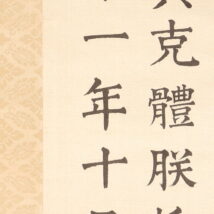 克體朕
一年十